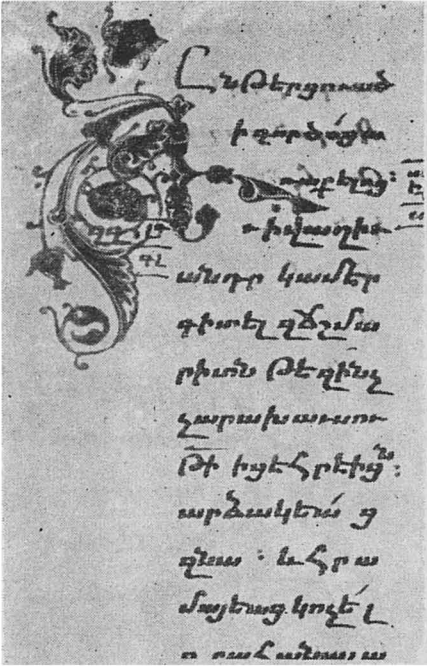 Ընթերցուած
ի գործոց ա
ռաքելոց:
Ի վաղիւ
անդր կամեր
գիտել զճշմա
րիտն թե զինչ
չարախաւսու
թի իցե հրեիցն:
արձակեաց
զնա : և հրա
մայեաց կոչել